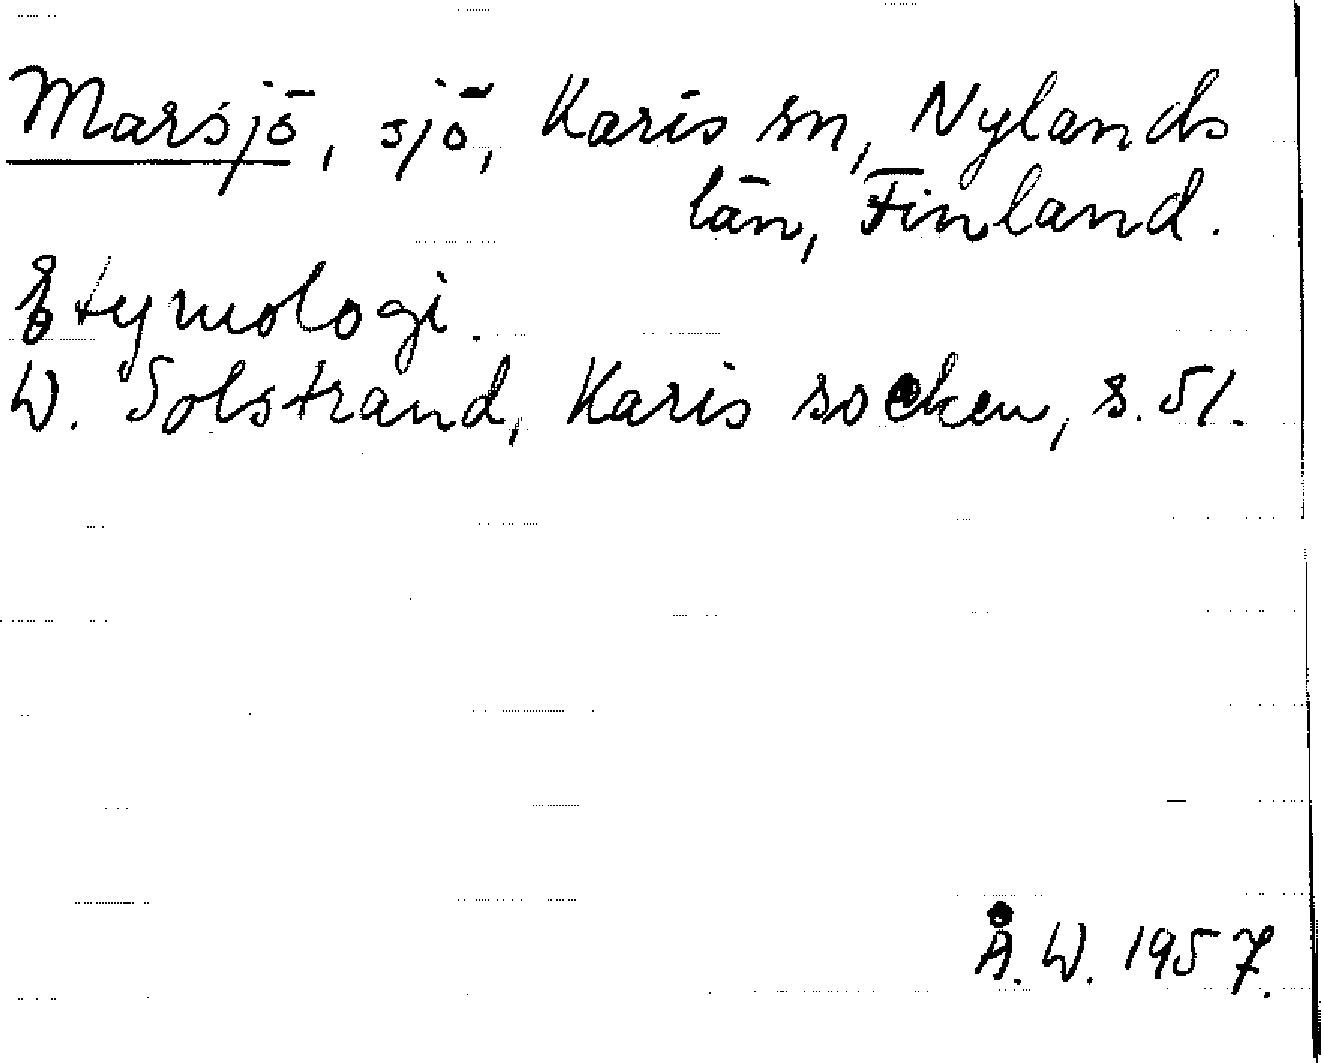 Marsjö, sjö, Karis sn, Nylands
län, Finland.
Etymologi.
W. Solstrand, Karis socken, s. 51.
Å. W. 1957.